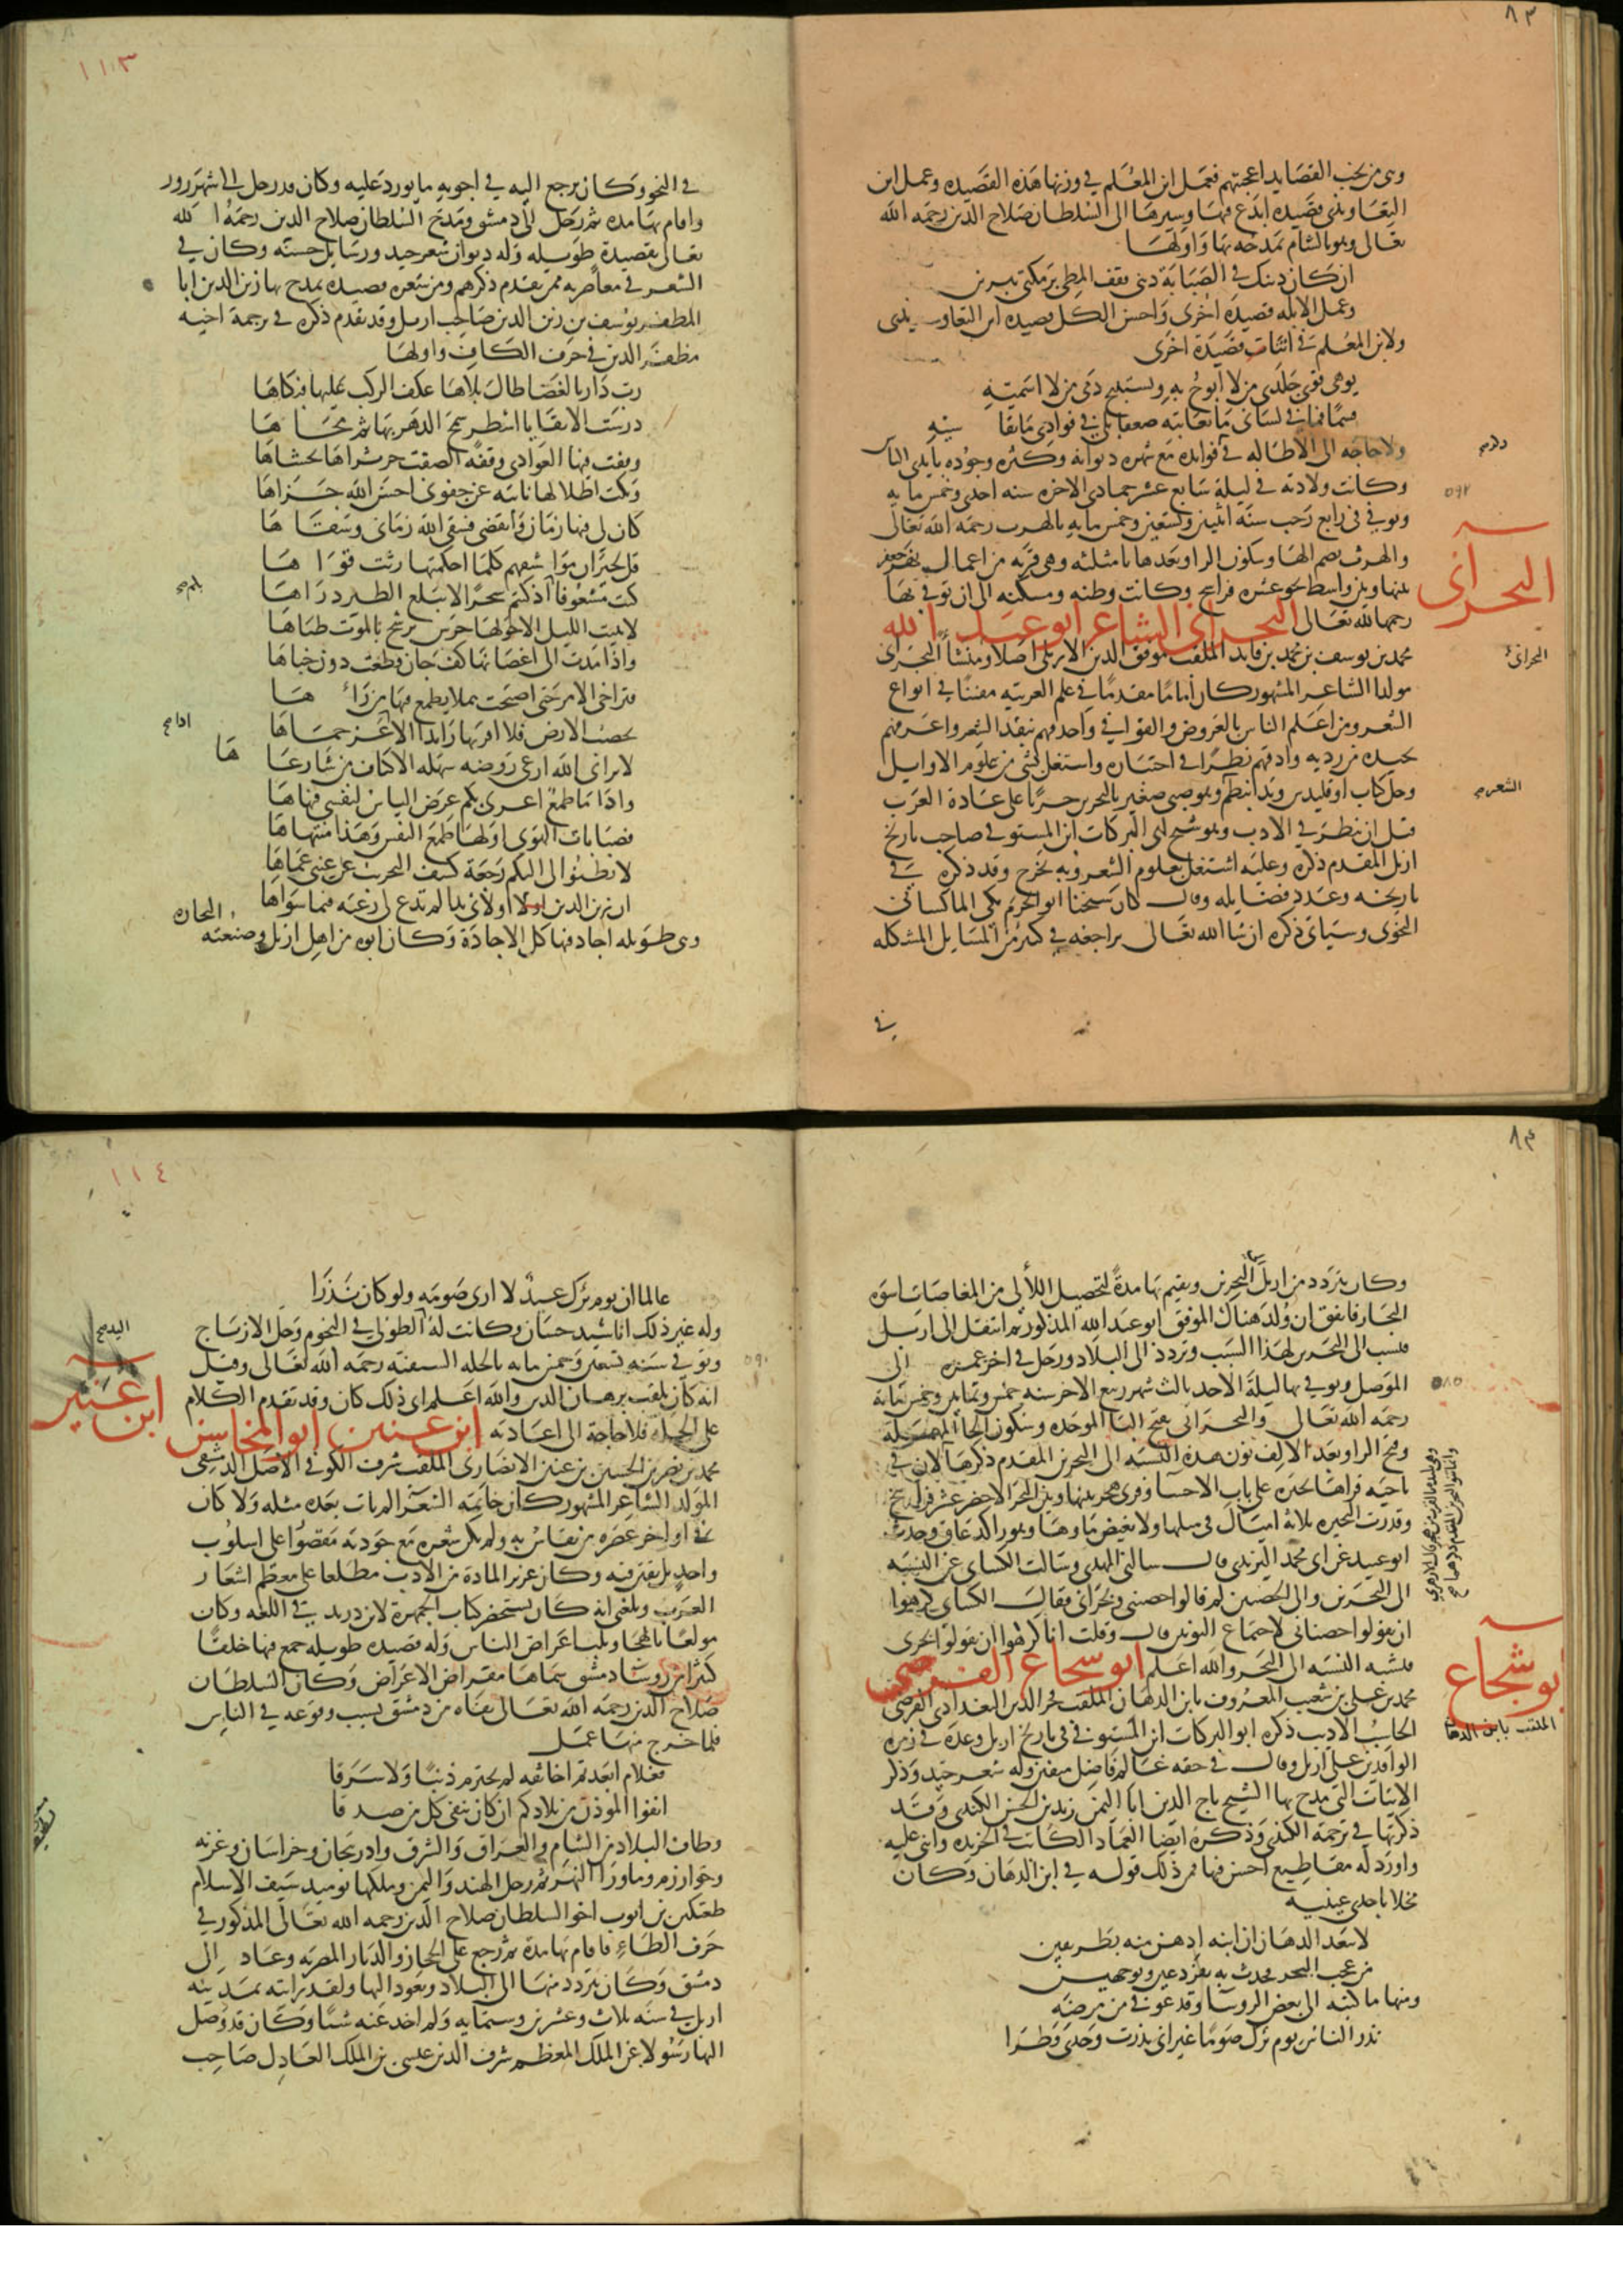 ٨٣
وهي من نخب القصايد اعجبتهم فعمل ابن المعلم في وزنها هذه القصيده وعمل ابن
التعاويذي قصيده ابدع فيها وسيرها الى السلطان صلاح الدين رحمه الله
تعالى وهو بالشام يمدحه بها واولها
ان كان دينك في الصبابة ديني فقف المطي برملتي يبرين
وعمل الابله قصيدة اخرى واحسن الكل قصيده ابن التعاويذي
ولابن المعلم في اثنات قصيدة اخرى
يوهي قوى جلدي من لا ابوح به ويستبيح دمي من لا اسميته
قسما فما في لساني ما يعاتبه ضعفا بل في فوادي ما يقاسيه
ولا حاجه الى الاطاله في فوايده مع شهره ديوانه وكثره وجوده بايدي الناس
وكانت ولادته في ليلة سابع عشر جمادى الاخره سنه احدى وخمس مايه
وتوفي في رابع رجب سنة اثنين وتسعين وخمس مايه بالهرث رحمه الله تعالى
٥٩٢
والهرث بضم الها وسكون الرا وبعدها ثا مثلثه وهي قريه من اعمال نهر جعفر
بينها وبين واسط نحو عشره فراسخ وكانت وطنه ومسكنه الى ان توفي بها
رحمه الله تعالى البحراني الشاعر ابو عبد الله
البحراني
محمد بن يوسف بن محمد بن قايد الملقب موفق الدين الاربلي اصلا ومنشأ البحراني
البحراني
مولدا الشاعر المشهور كان اماما مقدما في علم العربيه مفننا في انواع
الشعر ومن اعلم الناس بالعروض والقوافي واحدهم بنقد الشعر واعرفهم
بجيده من رديه وادقهم نظرا في اختياره واشتغل بشي من علوم الاوايل
وحل كتاب اوقليدس وبدا ينظم وهو صبي صغير بالبحرين جريا على عادة العرب
قبل ان ينظر في الادب وهو شيخ ابي البركات ابن المستوفي صاحب تاريخ
اربل المقدم ذكره وعليه اشتغل بعلوم الشعر وبه تخرج وقد ذكره في
تاريخه وعدد فضايله وقال كان شيخنا ابو الحرم مكي الماكساني
النحوي وسياتي ذكره ان شا الله تعالى يراجعه في كثير من المسايل المشكله
في
١١٣
في النحو وكان يرجع اليه في اجوبه ما يورد عليه وكان قد رحل الى شهرزور
واقام بها مده ثم رحل الى دمشق ومدح السلطان صلاح الدين رحمه الله
تعالى بقصيدة طويله وله ديوان شعر جيد ورسايل حسنه وكان في
الشعر في معاصريه ممن تقدم ذكرهم ومن شعره قصيده يمدح بها زين الدين ابا
المظفر يوسف بن زين الدين صاحب اربل وقد تقدم ذكره في ترجمة اخيه
مظفر الدين في حرف الكاف واولها
رب دار بالغضا طال بلاها عكف الركب عليها فبكاها
درست الا بقايا اسطر سمح الدهر بها ثم محاها
وقفت فيها الغوادي وقفة الصقت حر ثراها بحشاها
وبكت اطلالها نائبه عن جفوني احسن الله جزاها
كان لي فيها زمان وانقضى فسقى الله زماني وسقاها
قل لجيران مواثيقهم كلما احكمتها رثت قواها
كنت مشغوفا بكم اذ كنتم شجرا لا يبلغ الطير ذراها
لا تبيت الليل الا حولها حرس ترشح بالموت ظباها
واذا مدت الى اغصانها كف جان قطعت دون جناها
فتراخى الامر حتى اصبحت هملا يطمع فيها من رآها
تخصب الارض فلا اقربها رائدا الا اذا عز حماها
لا يراني الله ارعى روضه سهله الاكناف من شا رعاها
واذا ما طمع اغرى بكم عرض الياس لنفسي فثناها
فصبابات الهوى اولها طمع النفس وهذا منتهاها
لا تظنوا لي اليكم رجعة كشف التجريب عن عيني عماها
ان زين الدين اولاني يدا لم تدع لي رغبه فيما سواها
وهي طويله اجاد فيها كل الاجادة وكان ابوه من اهل اربل وصنعته التجاره
٨٤
وكان يتردد من اربل الى البحرين ويقيم بها مدة لتحصيل اللآلي من المغاصات اسوه
التجار فاتفق ان ولد هناك الموفق ابو عبد الله المذكور ثم انتقل الى اربل
فنسب الى البحرين لهذا السبب وتردد الى البلاد ورحل في اخر عمره الى
الموصل وتوفي بها ليلة الاحد ثالث شهر ربيع الاخر سنه خمس وثمانين وخمس مائه
٥٨٥
رحمه الله تعالى والبحراني بفتح البا الموحده وسكون الحا المهمله
وفتح الرا وبعد الالف نون هذه النسبه الى البحرين المقدم ذكرها لان في
ناحيه قراها بحيره على باب الاحسا وقرى هجر بينها وبين البحر الاخضر عشر فراسخ
وقدرت البحيره ثلاثة اميال في مثلها ولا يغيض ماوها وهو راكد زعاق وحدث
ابو عبيد عن ابي محمد اليزيدي قال سالني المهدي وسالت الكسائي عن النسبه
الى البحرين والى الحصنين لم قالوا حصني وبحراني فقال الكسائي كرهوا
ان يقولوا حصناني لاجتماع النونين قال وقلت انا كرهوا ان يقولوا بحري
فتشبه النسبه الى البحر والله اعلم ابو شجاع الفرضي
ابو شجاع
الملقب بابن الدهان
محمد بن علي بن شعيب المعروف بابن الدهان الملقب فخر الدين البغدادي الفرضي
الحاسب الاديب ذكره ابو البركات ابن المستوفي في تاريخ اربل وعده في زمره
الوافدين على اربل وقال في حقه عالم فاضل متفنن وله شعر جيد وذكر
الابيات التي مدح بها الشيخ تاج الدين ابا اليمن زيد بن الحسن الكندي وقد
ذكرتها في ترجمة الكندي وذكره ايضا العماد الكاتب في الخريده واثنى عليه
واورد له مقاطيع احسن فيها فمن ذلك قوله في ابن الدهان وكان
مخلا باحدى عينيه
لا يبعد الدهان ان ابنه ادهن منه بطريقين
من عجب البحر فحدث به بفرد عين وبوجهين
ومنها ما كتبه الى بعض الروسا وقد عوفي من مرضه
نذر الناس يوم برك صوما غير اني نذرت وحدي فطرا
١١٤
عالما ان يوم برك عيد لا ارى صومه ولو كان نذرا
وله غير ذلك اناشيد حسان وكانت له اليد الطولى في النجوم وحل الازياج
وتوفي في سنه تسعين وخمس مايه بالحله السيفيه رحمه الله تعالى وقيل
٥٩٠
انه كان يلقب برهان الدين والله اعلم اي ذلك كان وقد تقدم الكلام
على الحله فلا حاجة الى اعادته ابن عنين ابو المحاسن
ابن عنين
محمد بن نصر بن الحسين بن عنين الانصاري الملقب شرف الكوفي الاصل الدمشقي
المولد الشاعر المشهور كان خاتمة الشعرا لم يات بعده مثله ولا كان
في اواخر عصره من يقاس به ولم يكن شعره مع جودته مقصورا على اسلوب
واحد بل يفنن فيه وكان غزير المادة من الادب مطلعا على معظم اشعار
العرب وبلغني انه كان يستحضر كتاب الجمهرة لابن دريد في اللغه وكان
مولعا بالهجا وثلب اعراض الناس وله قصيده طويله جمع فيها خلقا
كثيرا من روسا دمشق سماها مقراض الاعراض وكان السلطان
صلاح الدين رحمه الله تعالى نفاه من دمشق بسبب وقوعه في الناس
فلما خرج منها عمل
فعلام ابعدتم اخا ثقه لم يجترم ذنبا ولا سرقا
انفوا الموذن من بلادكم ان كان ينفى كل من صدقا
وطاف البلاد من الشام والعراق والشرق واذربيجان وخراسان وغزنه
وخوارزم وما ورا النهر ثم رحل الهند واليمن وملكها يوميذ سيف الاسلام
طغتكين بن ايوب اخو السلطان صلاح الدين رحمه الله تعالى المذكور في
حرف الطاء فاقام بها مدة ثم رجع على الحجاز والديار المصريه وعاد الى
دمشق وكان يتردد منها الى البلاد ويعود اليها ولقد رايته بمدينه
اربل في سنه ثلاث وعشرين وستمايه ولم اخذ عنه شيئا وكان قد وصل
اليها رسولا عن الملك المعظم شرف الدين عيسى بن الملك العادل صاحب